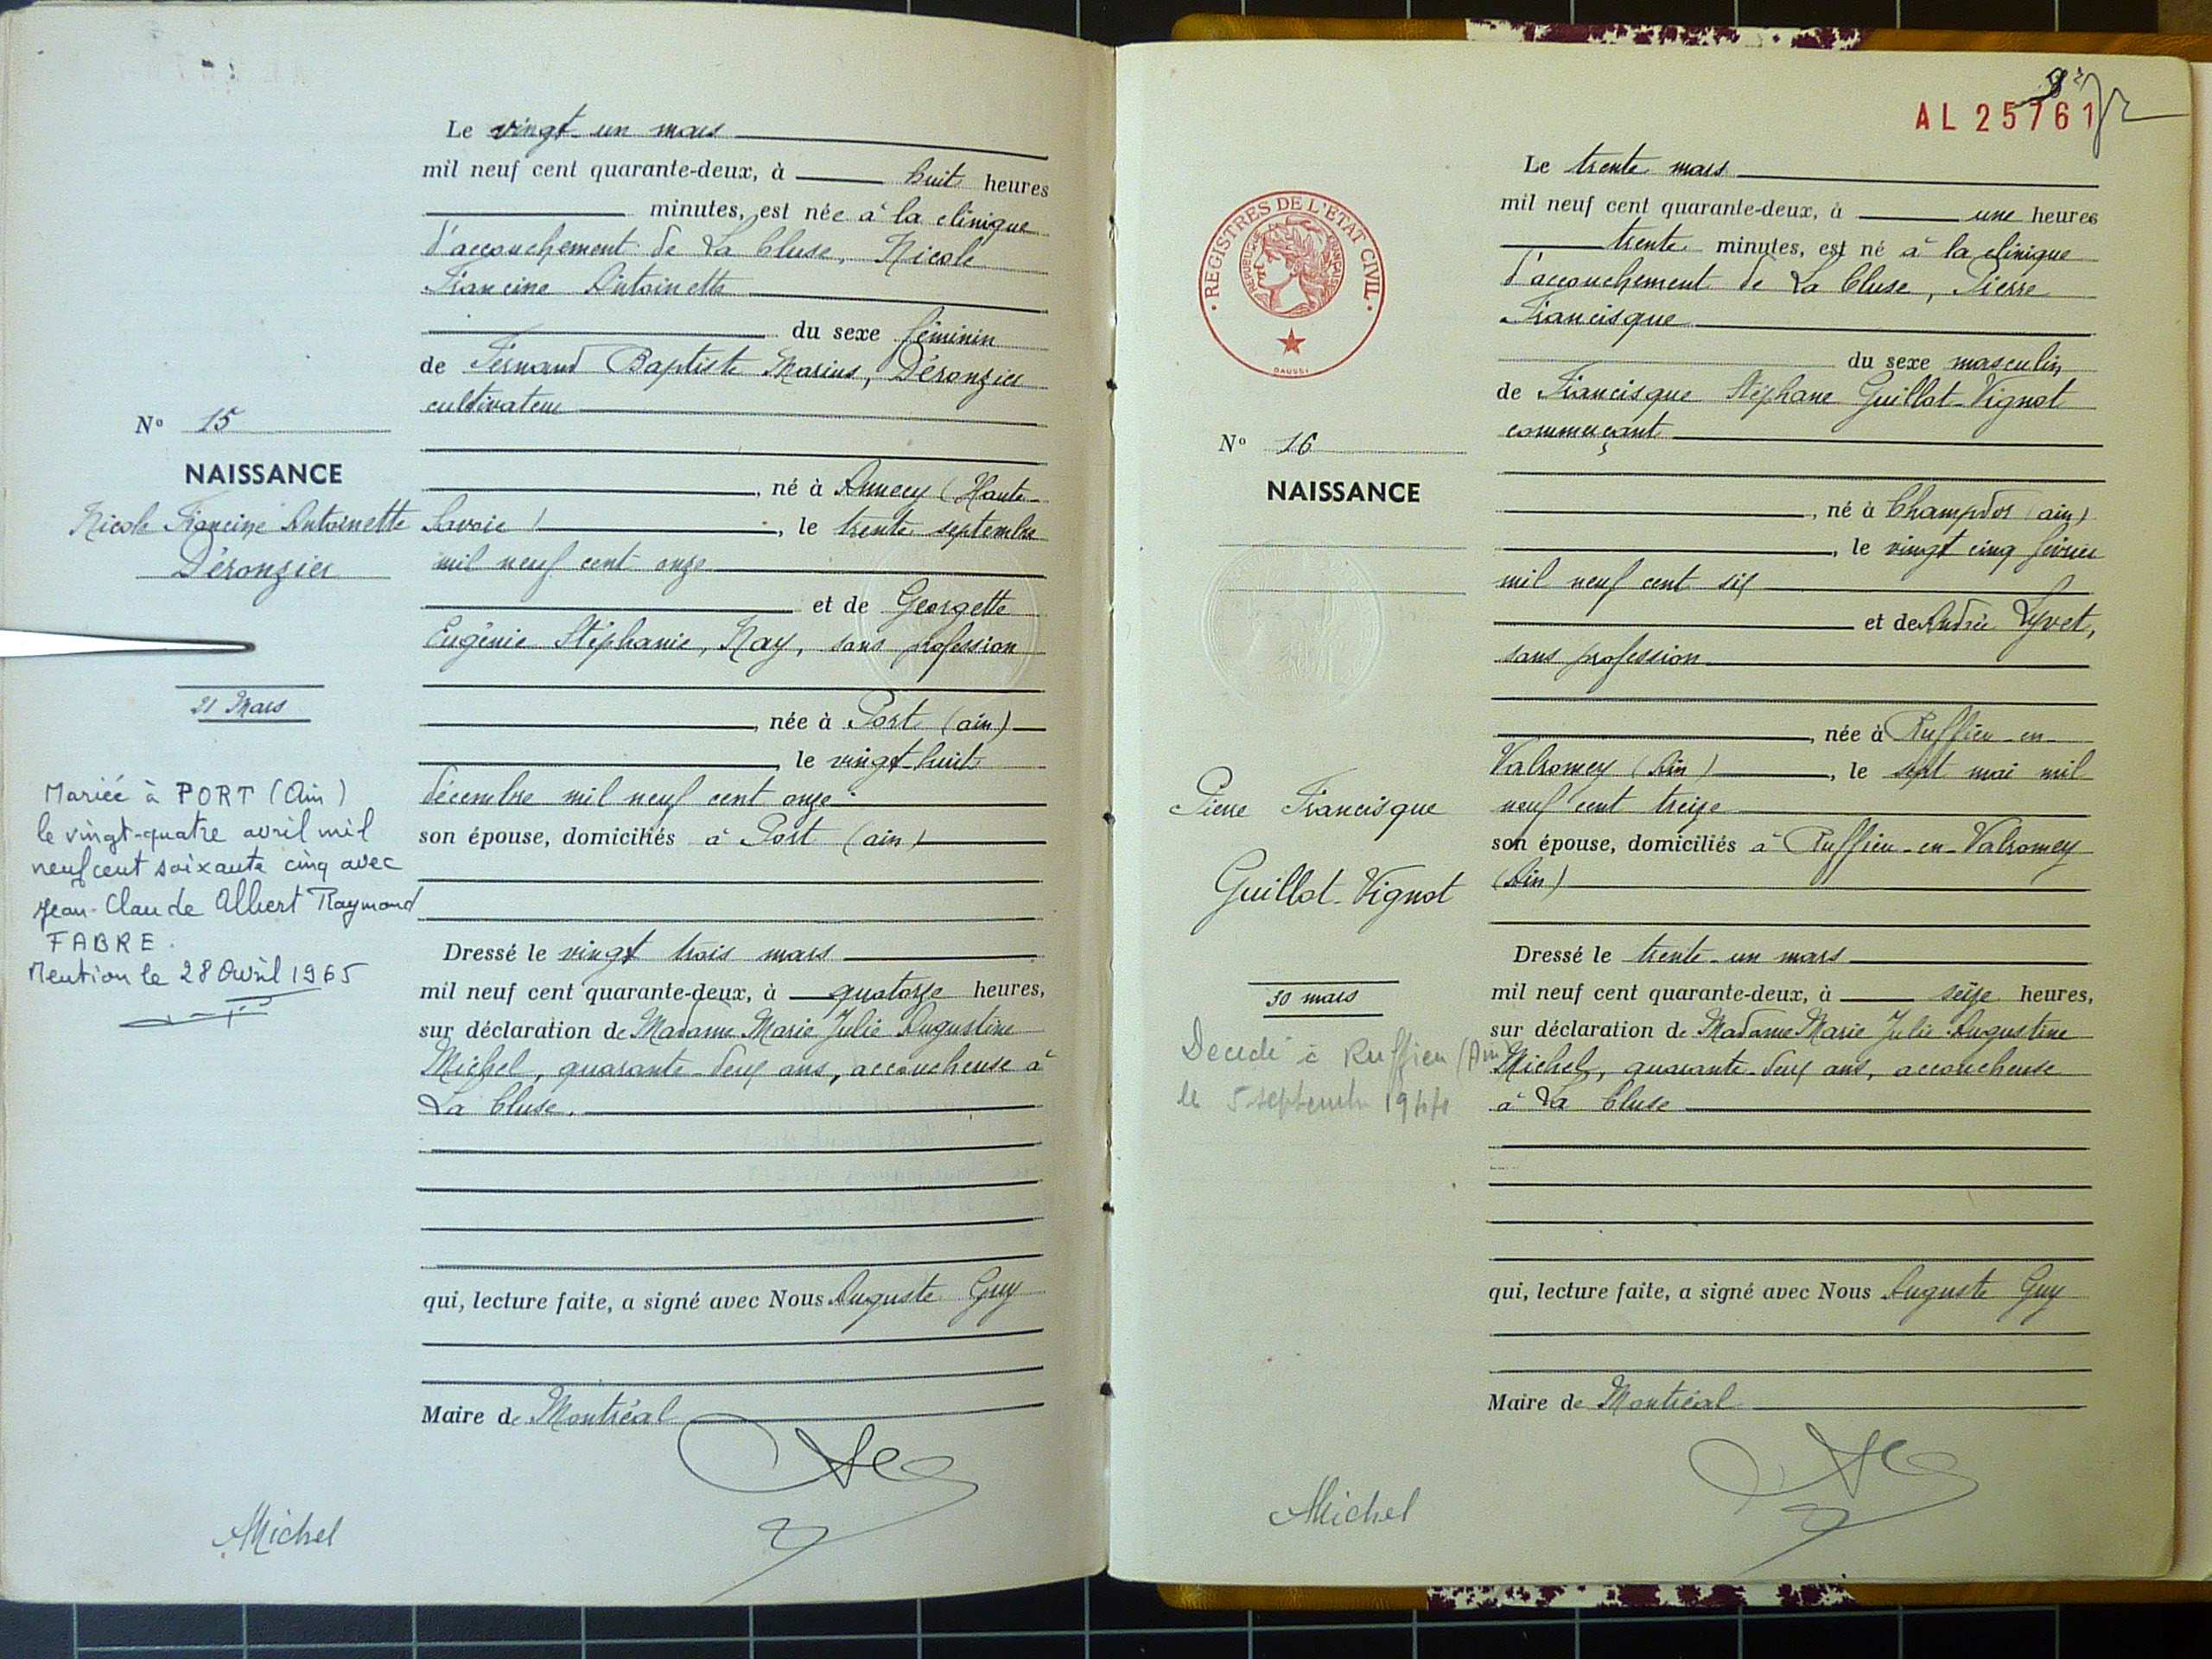 Le vingt-un mars
mil neuf cent quarante-deux, à huit heures
minutes, est née à la clinique
d'accouchement de La Cluse, Nicole
Francine Antoinette
du sexe féminin
de Fernand Baptiste Marius, Déronzier
cultivateur
né à Annecy (Haute-
Savoie), le trente septembre
mil neuf cent onze
et de Georgette
Eugénie Stéphanie, Nay, sans profession
, née à Port (ain)
, le vingt-huit
décembre mil neuf cent onze
son épouse, domiciliés à Port (ain)
Dressé le vingt trois mars
mil neuf cent quarante-deux, à quatorze heures,
sur déclaration de Madame Marie Julie Augustine
Michel, quarante-deux ans, accoucheuse à
La Cluse.
qui, lecture faite, a signé avec Nous Auguste Guy
Maire de Montréal
Michel
N° 15
NAISSANCE
Nicole Francine Antoinette
Déronzier
21 Mars
Mariée à PORT (Ain)
le vingt-quatre avril mil
neuf cent soixante cinq avec
Jean-Claude Albert Raymond
FABRE.
Mention le 28 Avril 1965
AL 25761
REGISTRES DE L'ETAT CIVIL
REPUBLIQUE FRANÇAISE
DAUSSI
N° 16
NAISSANCE
Pierre Francisque
Guillot-Vignot
30 mars
Decedé à Ruffieu (Ain)
le 5 septembre 1944
Le trente mars
mil neuf cent quarante-deux, à une heures
trente minutes, est né à la clinique
d'accouchement de La Cluse, Pierre
Francisque
du sexe masculin
de Francisque Stéphane Guillot-Vignot
commerçant
, né à Champdor (ain)
, le vingt cinq février
mil neuf cent six
et de Andrée Lyvet,
sans profession
, née à Ruffieu-en-
Valromey (Ain), le sept mai mil
neuf cent treize
son épouse, domiciliés à Ruffieu-en-Valromey
(Ain)
Dressé le trente-un mars
mil neuf cent quarante-deux, à seize heures,
sur déclaration de Madame Marie Julie Augustine
Michel, quarante-deux ans, accoucheuse
à La Cluse
qui, lecture faite, a signé avec Nous Auguste Guy
Maire de Montréal
Michel